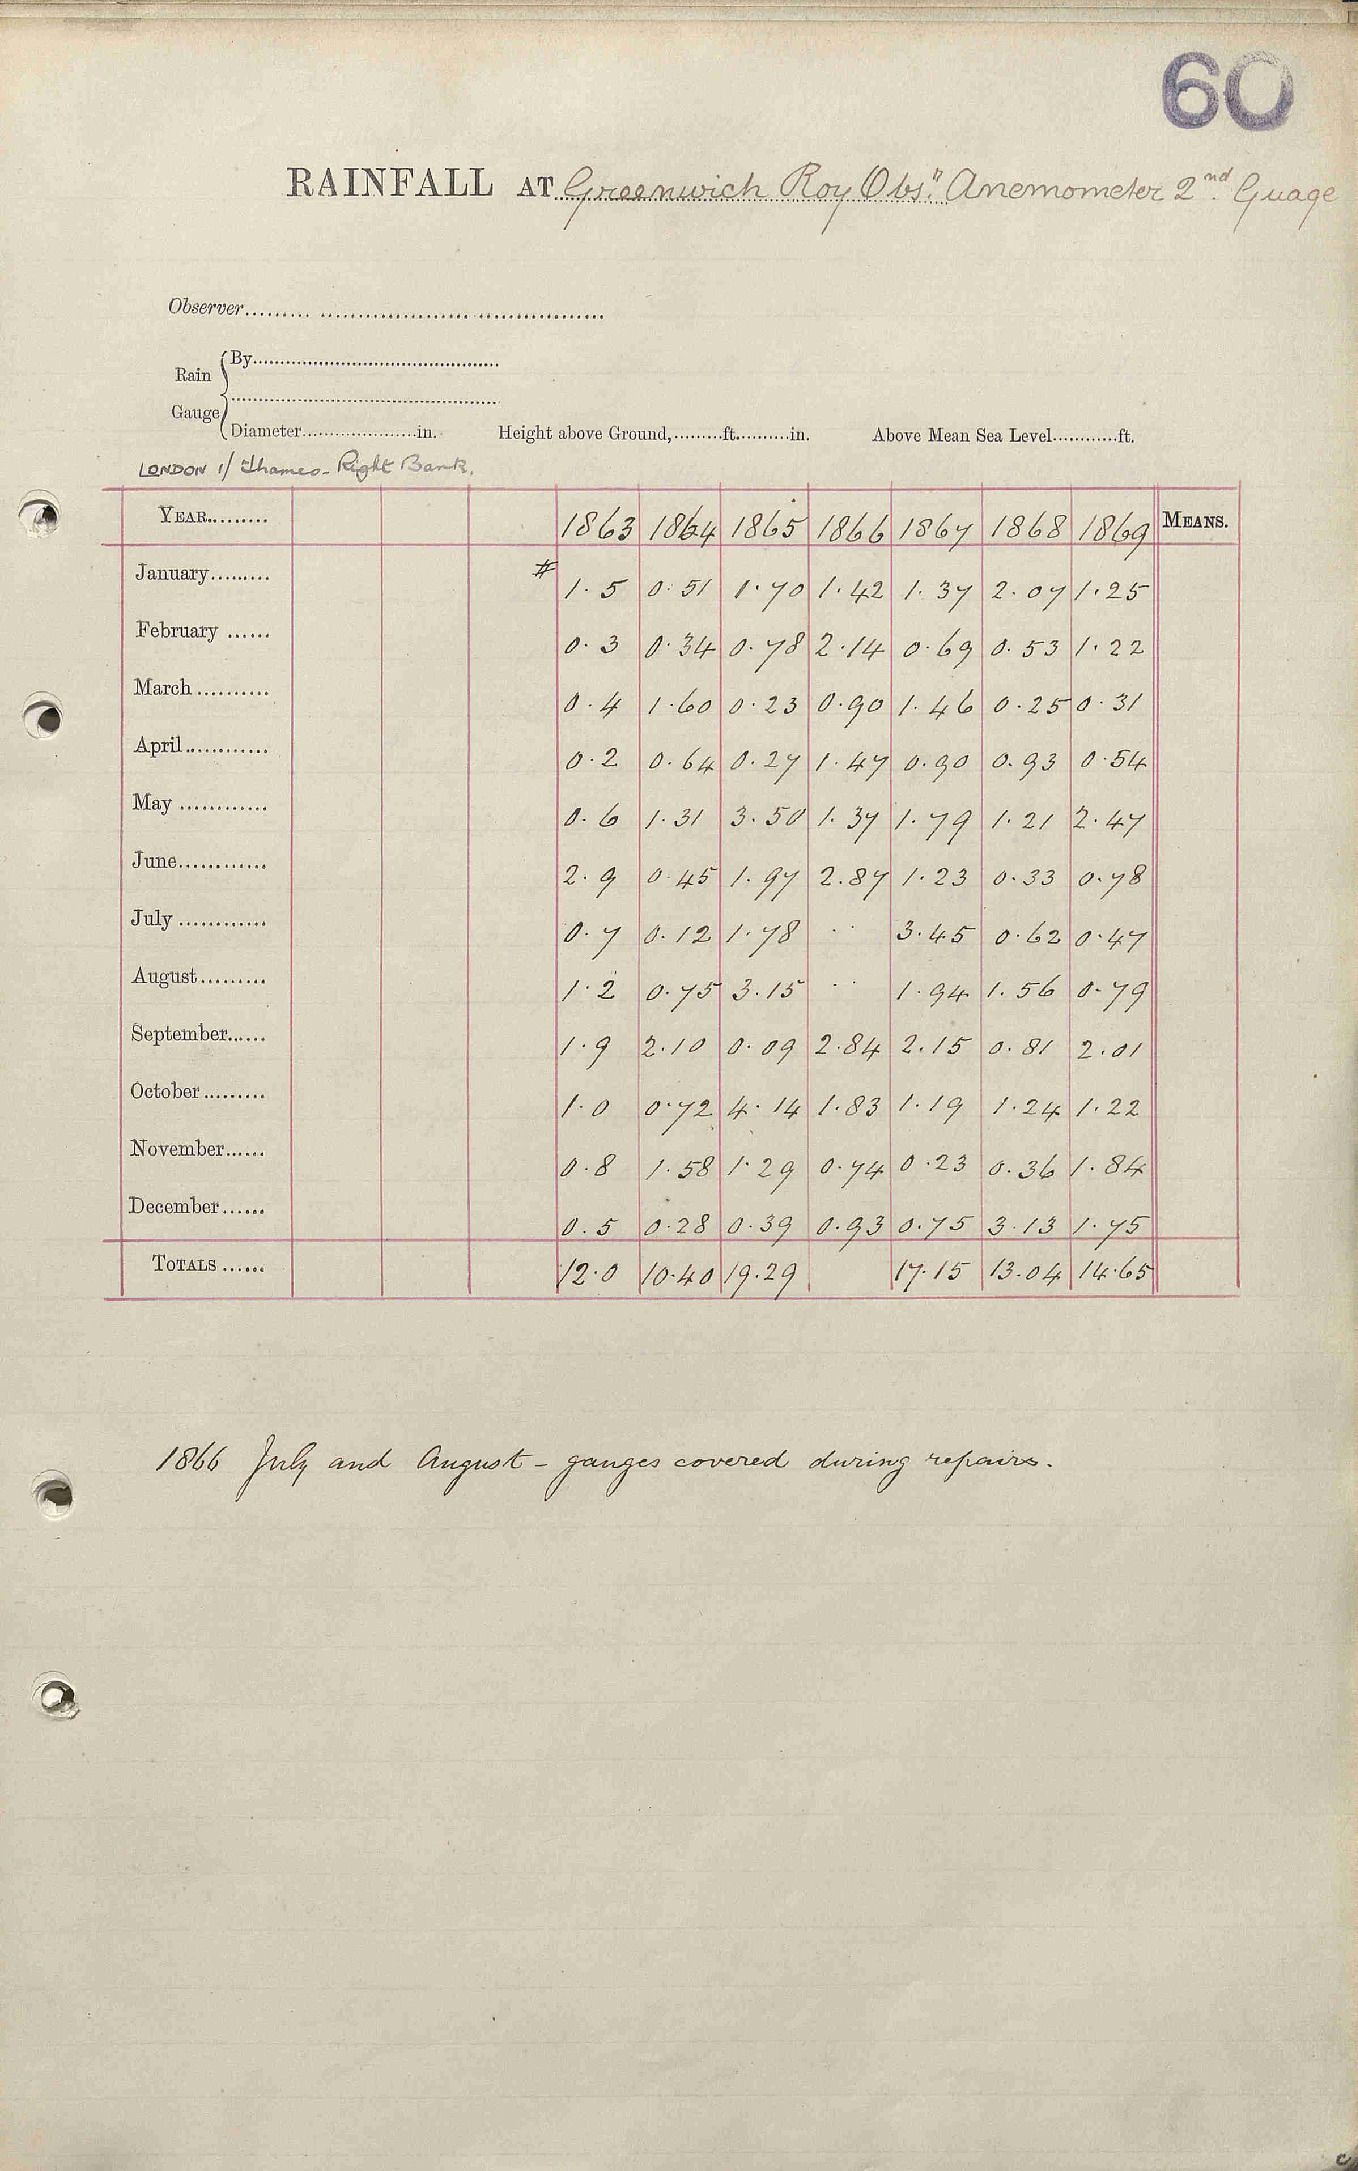 60
RAINFALL AT Greenwich Roy Obs.y Anemometer 2nd. Guage
Observer..............................
By..............................
Rain
Gauge
Diameter..............in. Height above Ground,.........ft..........in. Above Mean Sea Level............ft.
LONDON 1/ Thames - Right Bank.
YEAR......... 1863 1864 1865 1866 1867 1868 1869 MEANS.
January......... # 1.5 0.51 1.70 1.42 1.37 2.07 1.25
February ...... 0.3 0.34 0.78 2.14 0.69 0.53 1.22
March.......... 0.4 1.60 0.23 0.90 1.46 0.25 0.31
April............ 0.2 0.64 0.27 1.47 0.90 0.93 0.54
May ............ 0.6 1.31 3.50 1.37 1.79 1.21 2.47
June............ 2.9 0.45 1.97 2.87 1.23 0.33 0.78
July ............ 0.7 0.12 1.78 .. 3.45 0.62 0.47
August......... 1.2 0.75 3.15 .. 1.94 1.56 0.79
September...... 1.9 2.10 0.09 2.84 2.15 0.81 2.01
October ......... 1.0 0.72 4.14 1.83 1.19 1.24 1.22
November...... 0.8 1.58 1.29 0.74 0.23 0.36 1.84
December...... 0.5 0.28 0.39 0.93 0.75 3.13 1.75
TOTALS ...... 12.0 10.40 19.29 17.15 13.04 14.65
1866 July and August - gauges covered during repairs.